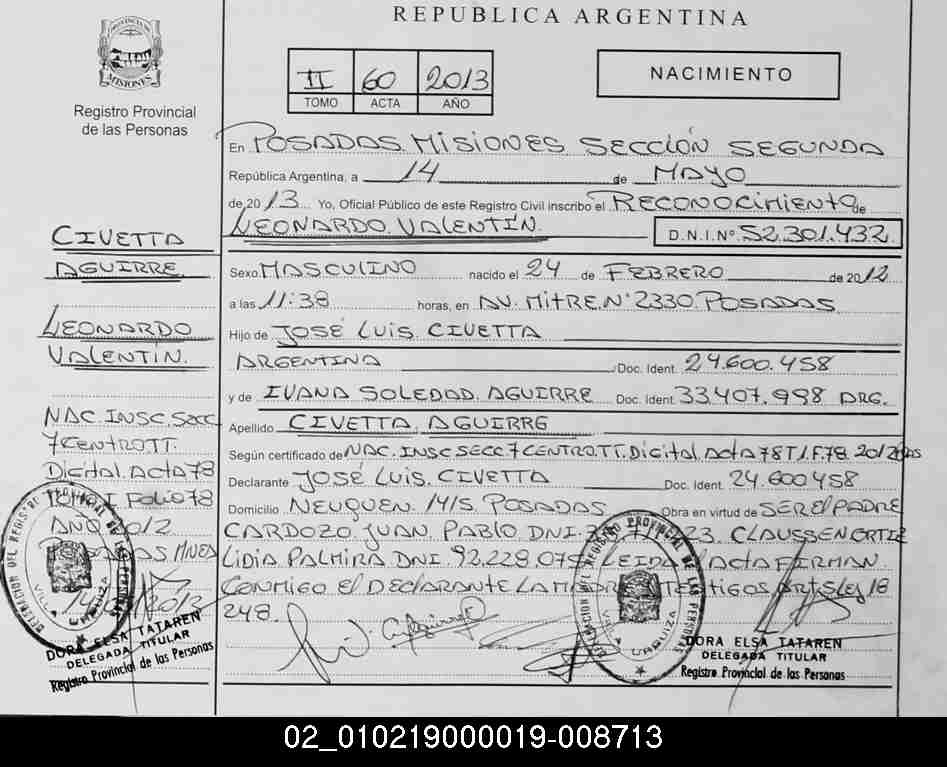 REPUBLICA ARGENTINA
PROVINCIA DE MISIONES
Registro Provincial
de las Personas
II 60 2013
TOMO ACTA AÑO
NACIMIENTO
En POSADAS. MISIONES SECCIÓN SEGUNDA
República Argentina, a 14 de MAYO
de 2013 Yo, Oficial Público de este Registro Civil inscribo el RECONOCIMIENTO de
LEONARDO VALENTÍN. D.N.I.Nº 52.301.432
Sexo MASCULINO nacido el 24 de FEBRERO de 2012
a las 11:38 horas, en AV. MITRE. Nº 2330. POSADAS
Hijo de JOSÉ LUIS CIVETTA
ARGENTINA Doc. Ident. 24.600.458
y de IVANA SOLEDAD AGUIRRE Doc. Ident. 33.407.998 ARG.
Apellido CIVETTA AGUIRRE
Según certificado de NAC. INSC. SECC 7 CENTRO. TT. Digital. Acta 78 T I. F. 78. 2012
Declarante JOSÉ LUIS. CIVETTA Doc. Ident. 24.600458
Domicilio NEUQUEN. 1415. POSADAS Obra en virtud de SER EL PADRE
CARDOZO JUAN PABLO DNI. CLAUSSEN ORTIZ
LIDIA PALMIRA. DNI. 92.228.075 LEIDA ACTA FIRMAN
CONMIGO EL DECLARANTE LA MADRE TESTIGOS Art Ley 18
248.
CIVETTA
AGUIRRE
LEONARDO
VALENTÍN.
NAC. INSC. SECC
7 CENTRO. TT.
Digital. Acta 78
TOMO I Folio 78
AÑO 2012
POSADAS MNES
14/05/2013
DORA ELSA TATAREN
DELEGADA TITULAR
Registro Provincial de las Personas
DELEGACION DEL REGISTRO PROVINCIAL DE LAS PERSONAS
VILLA URQUIZA
DORA ELSA TATAREN
DELEGADA TITULAR
Registro Provincial de las Personas
02_010219000019-008713